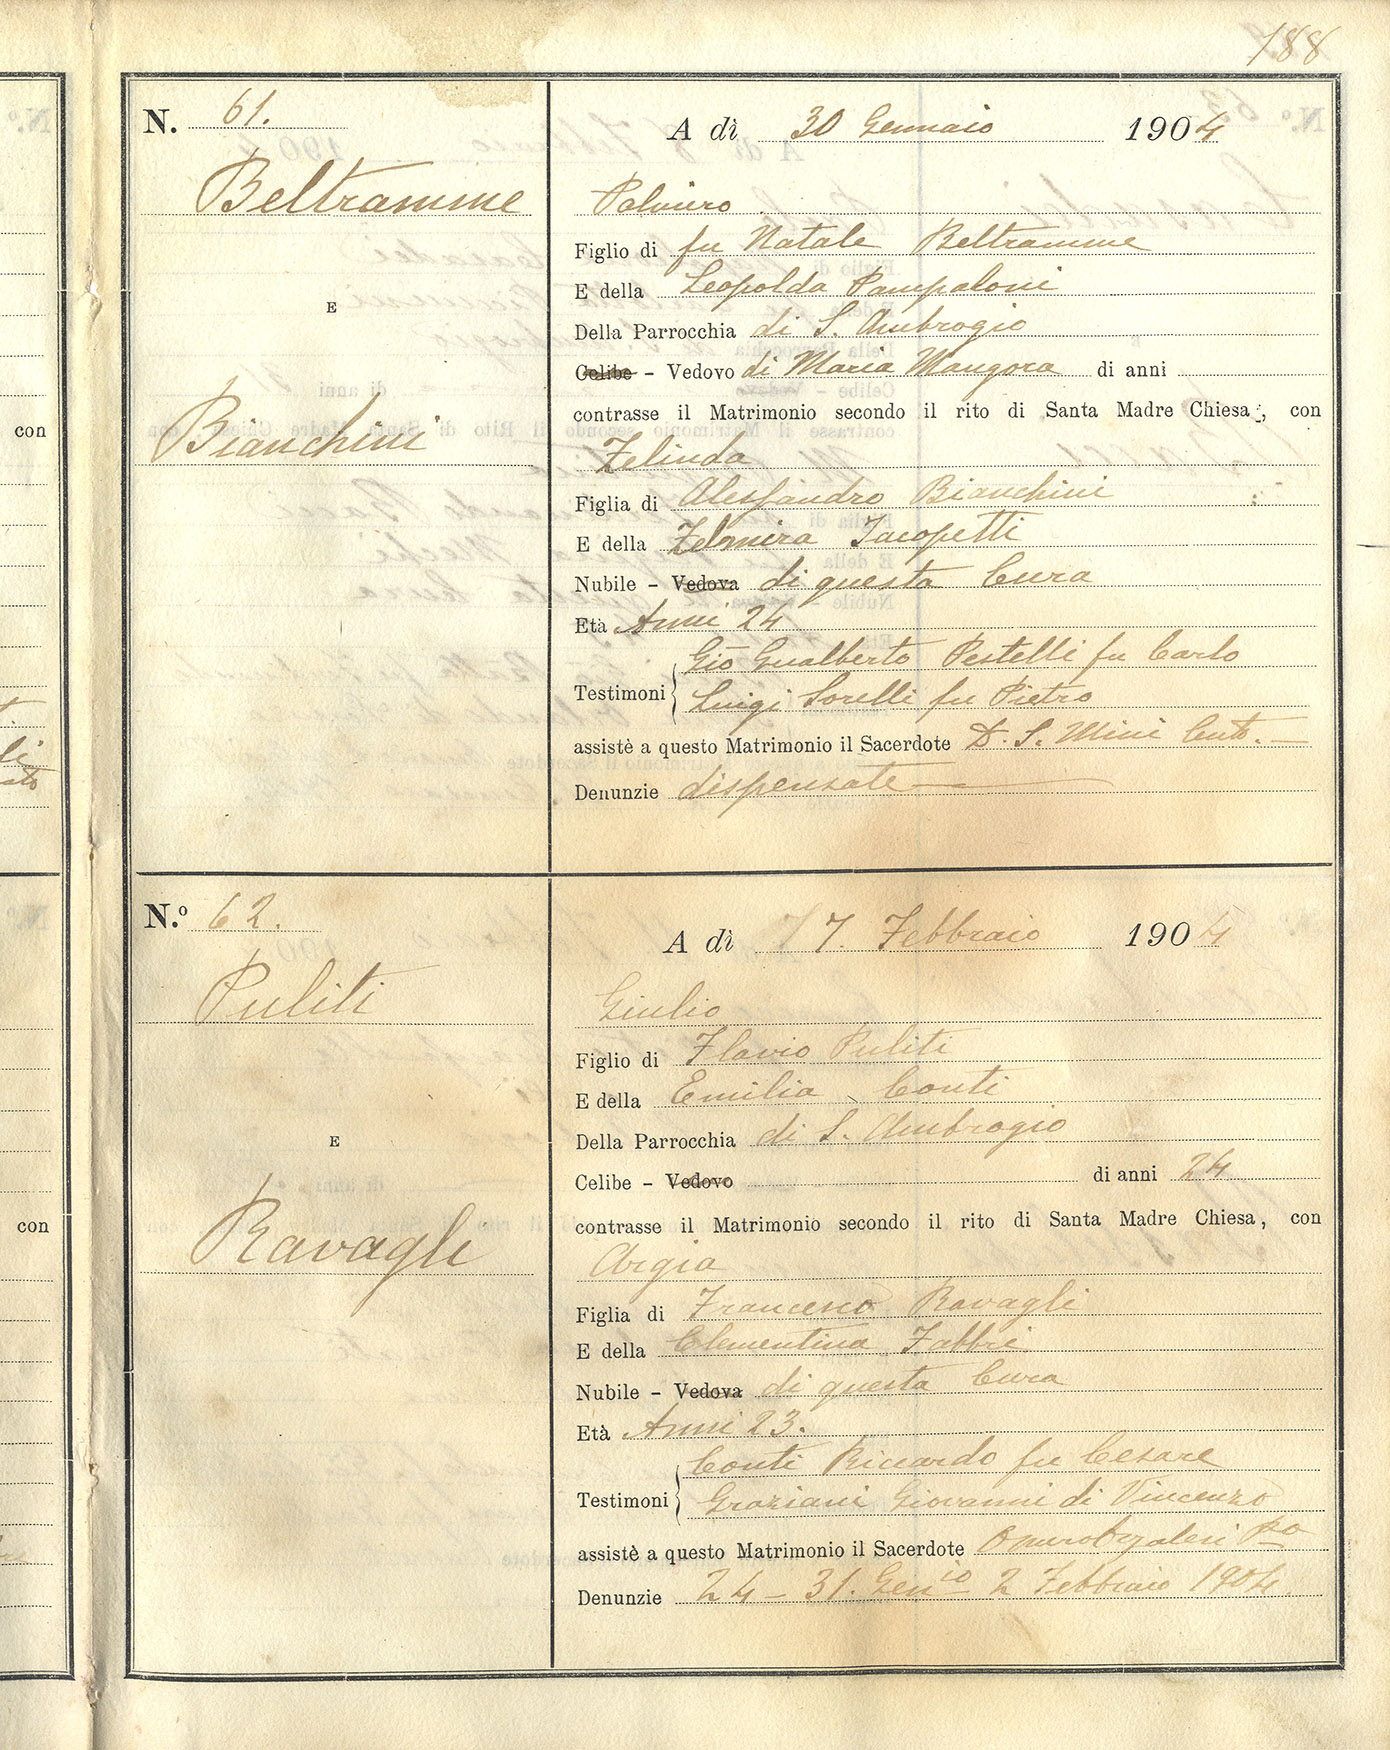 188
N. 61.
A dì 30 Gennaio 1904
Beltramme
Palmiro
Figlio di fu Natale Beltramme
E della Leopolda Pampaloni
E
Della Parrocchia di S. Ambrogio
Celibe - Vedovo di Maria Mangora di anni
contrasse il Matrimonio secondo il rito di Santa Madre Chiesa, con
Bianchini
Zelinda
Figlia di Alessandro Bianchini
E della Zelmira Iacopetti
Nubile - Vedova di questa Cura
Età Anni 24
Gio Gualberto Pestelli fu Carlo
Testimoni
Luigi Sorelli fu Pietro
assistè a questo Matrimonio il Sacerdote D. S. Mini
Denunzie dispensate
N.º 62.
A dì 7. Febbraio 1904
Puliti
Giulio
Figlio di Flavio Puliti
E della Emilia Conti
E
Della Parrocchia di S. Ambrogio
Celibe - Vedovo di anni 24
contrasse il Matrimonio secondo il rito di Santa Madre Chiesa, con
Ravagli
Argia
Figlia di Francesco Ravagli
E della Clementina Fabbri
Nubile - Vedova di questa Cura
Età Anni 23.
Conti Riccardo fu Cesare
Testimoni
Graziani Giovanni di Vincenzo
assistè a questo Matrimonio il Sacerdote
Denunzie 24 - 31. Genio 2 Febbraio 1904
con
con